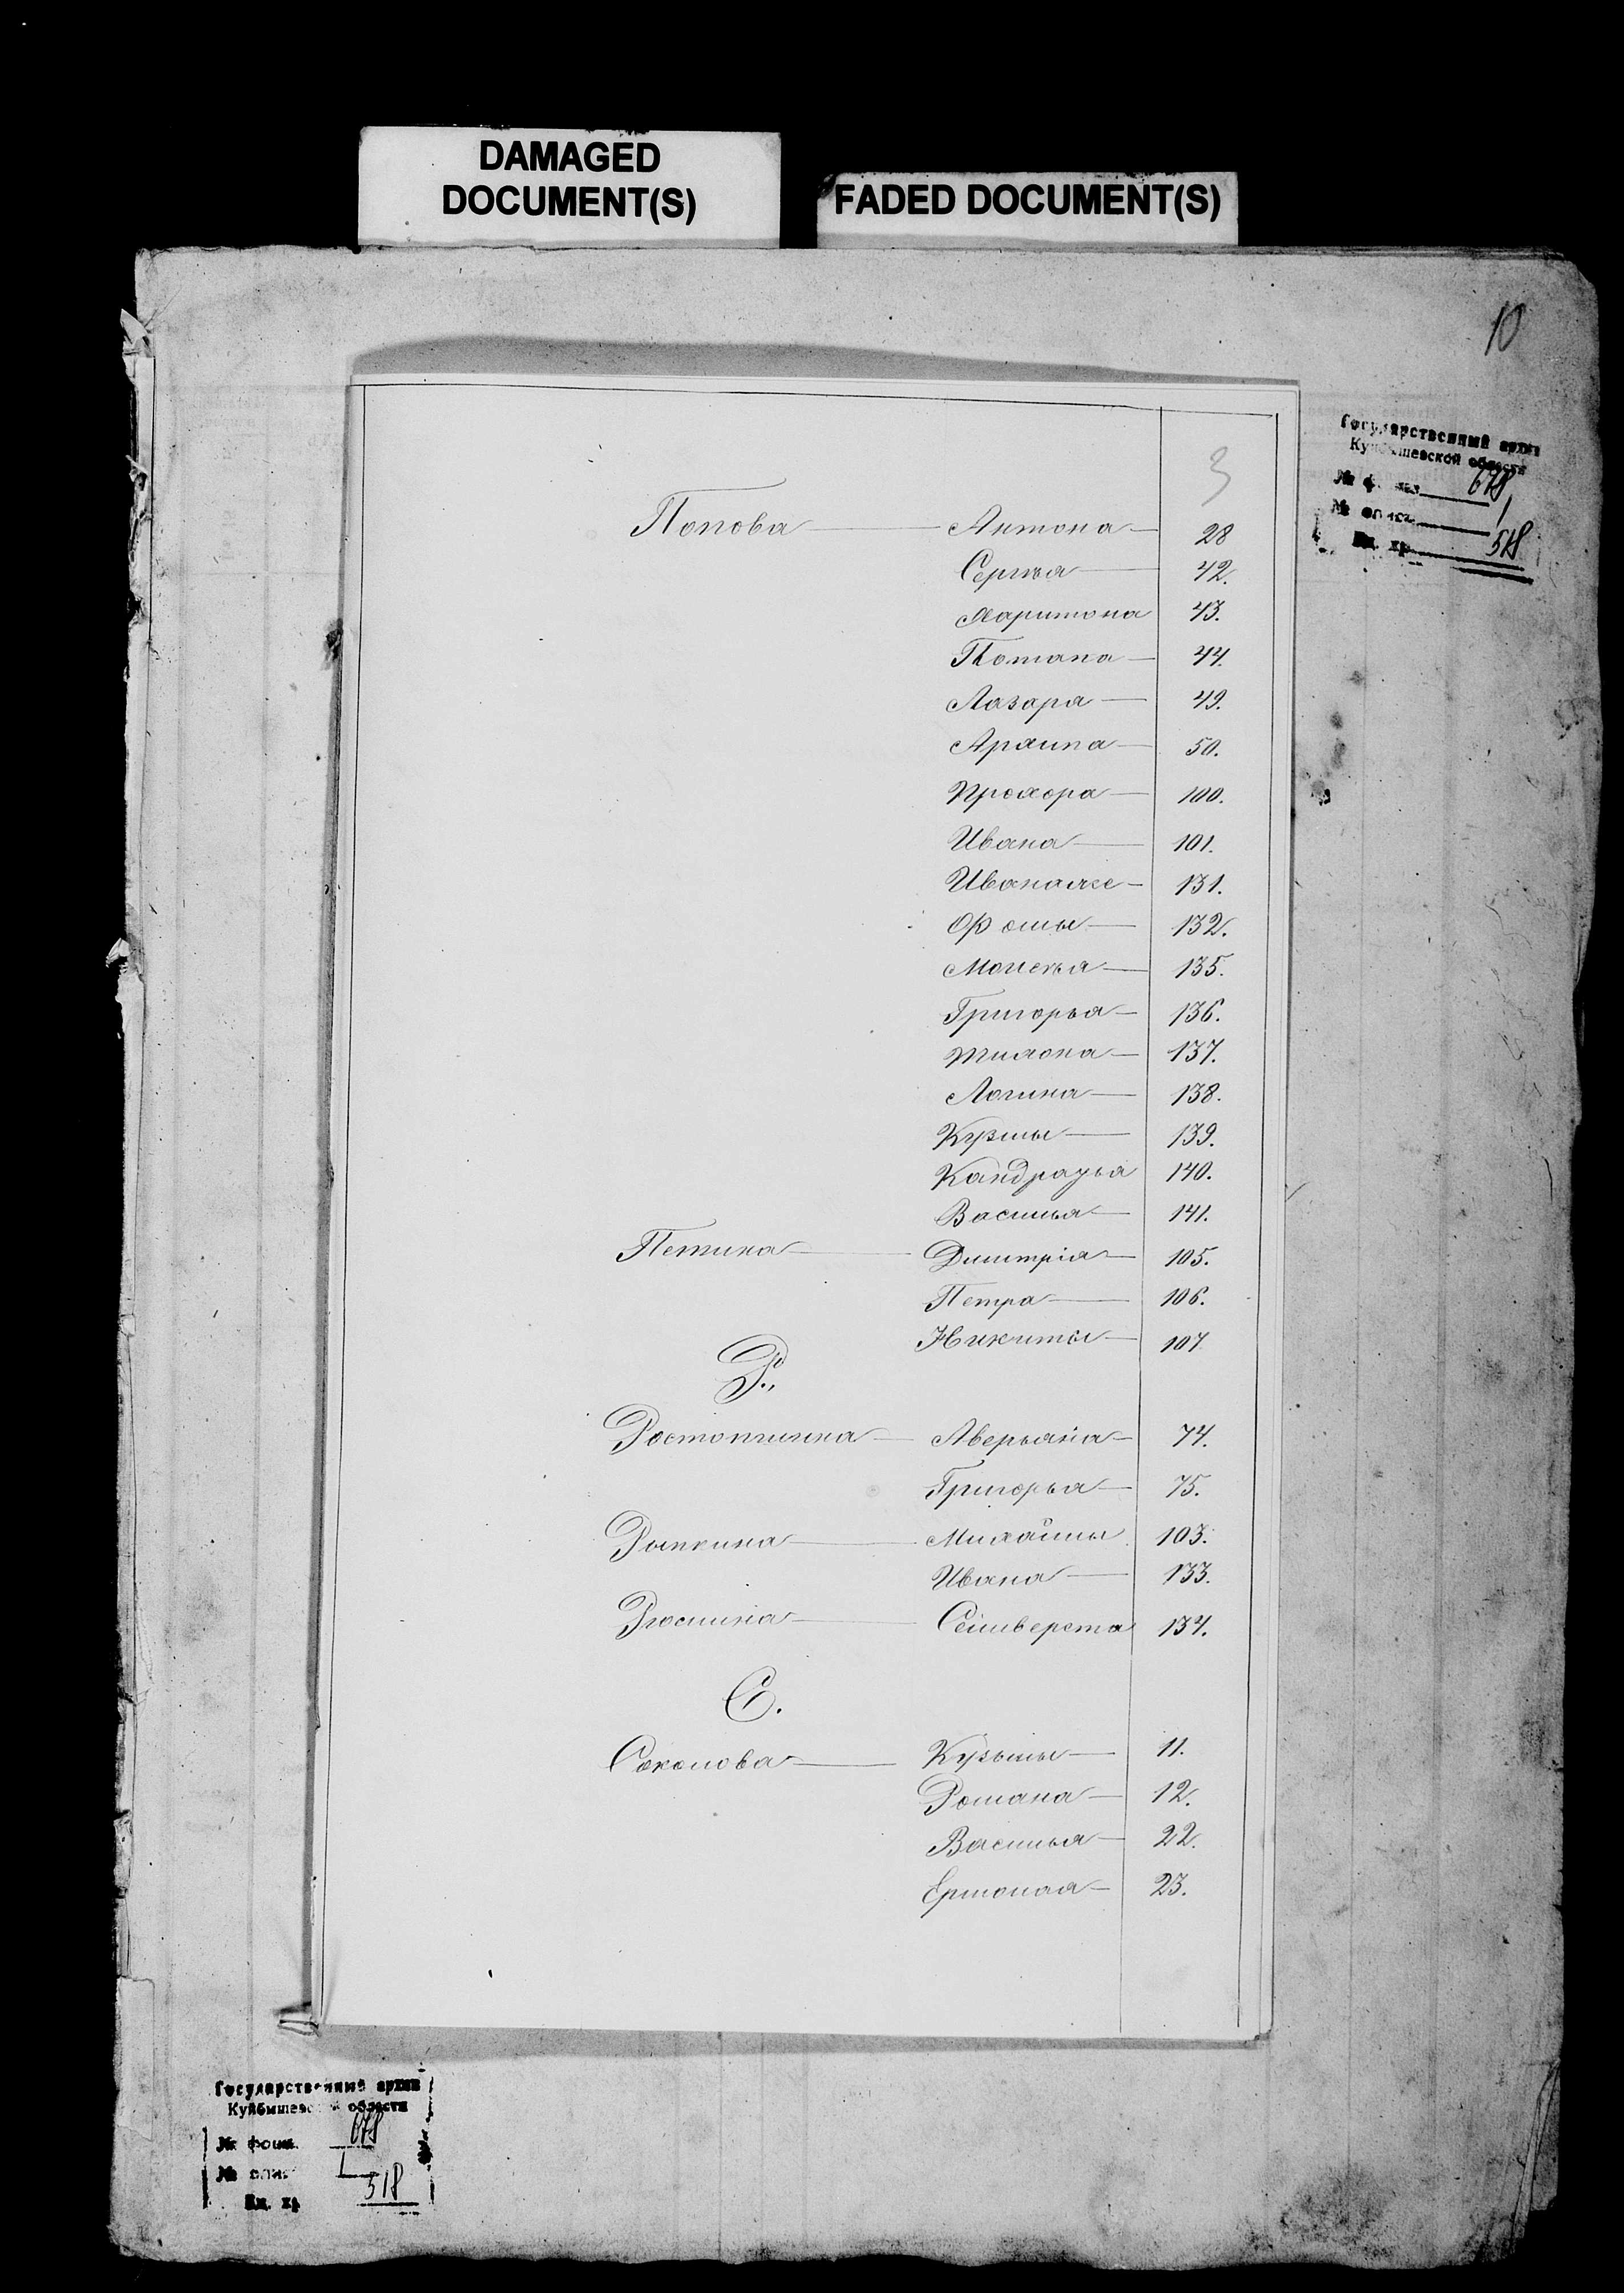 DAMAGED
DOCUMENT(S)
FADED DOCUMENT(S)
10
Государственный архив
Куйбышевской области
№ фонд 678
№ опис 1
Ед. хр. 518
3
Попова — Антона — 28
Сергѣя — 42.
Харитона 43.
Потапа — 44.
Лазаря — 49.
Архипа — 50.
Прохора — 100.
Ивана — 101.
Иванаже — 131.
Фомы — 132.
Моисея — 135.
Григорья — 136.
Тихона — 137.
Логина — 138.
Кузмы — 139.
Кандратья 140.
Василья — 141.
Петина — Димитрія — 105.
Петра — 106.
Никиты — 107
Р.,
Ростопчина — Аверьяна — 74.
Григорья — 75.
Рыпкина — Михайлы 103.
Ивана — 133.
Рюмина — Селиверста 134.
С.
Соколова — Кузьмы — 11.
Романа — 12.
Василья — 22.
Ермолая — 23.
Государственный архив
Куйбышевской области
№ фонд 678
№ опис 1
Ед. хр 518